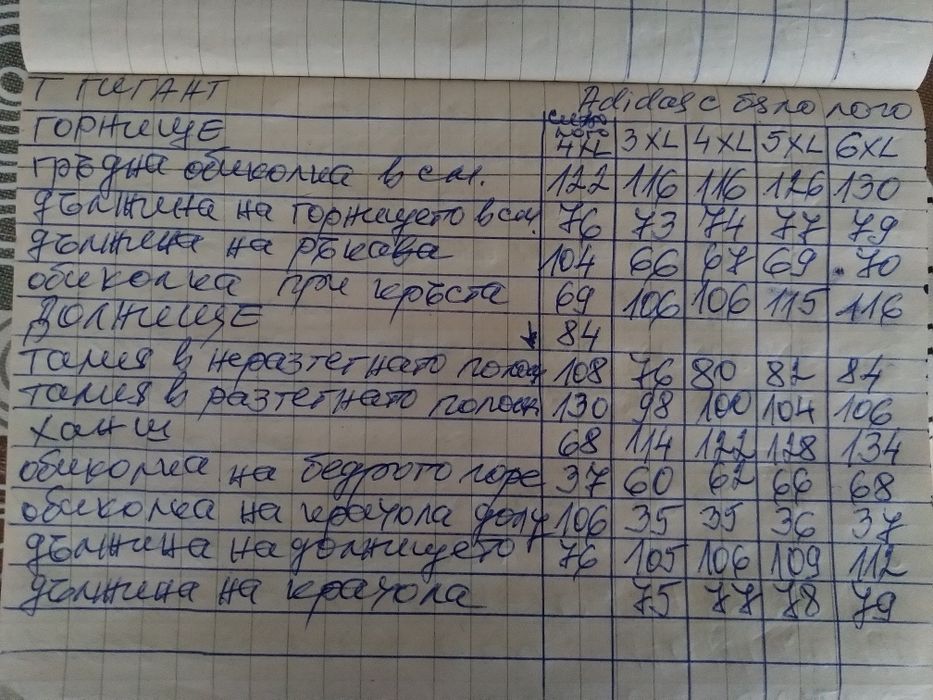 Т ГИГАНТ Adidas с бяло лого
ГОРНИЩЕ синьо лого 4XL 3XL 4XL 5XL 6XL
гръдна обиколка в см. 122 116 116 126 130
дължина на горнището в см. 76 73 74 77 79
дължина на ръкава 104 66 67 69 70
обиколка при кръста 69 106 106 115 116
ДОЛНИЩЕ 84
талия в неразтегнато полож 108 76 80 82 84
талия в разтегнато полож 130 98 100 104 106
ханш 68 114 122 128 134
обиколка на бедрото горе 37 60 62 66 68
обиколка на крачола долу 106 35 35 36 37
дължина на долнището 76 105 106 109 112
дължина на крачола 75 77 78 79